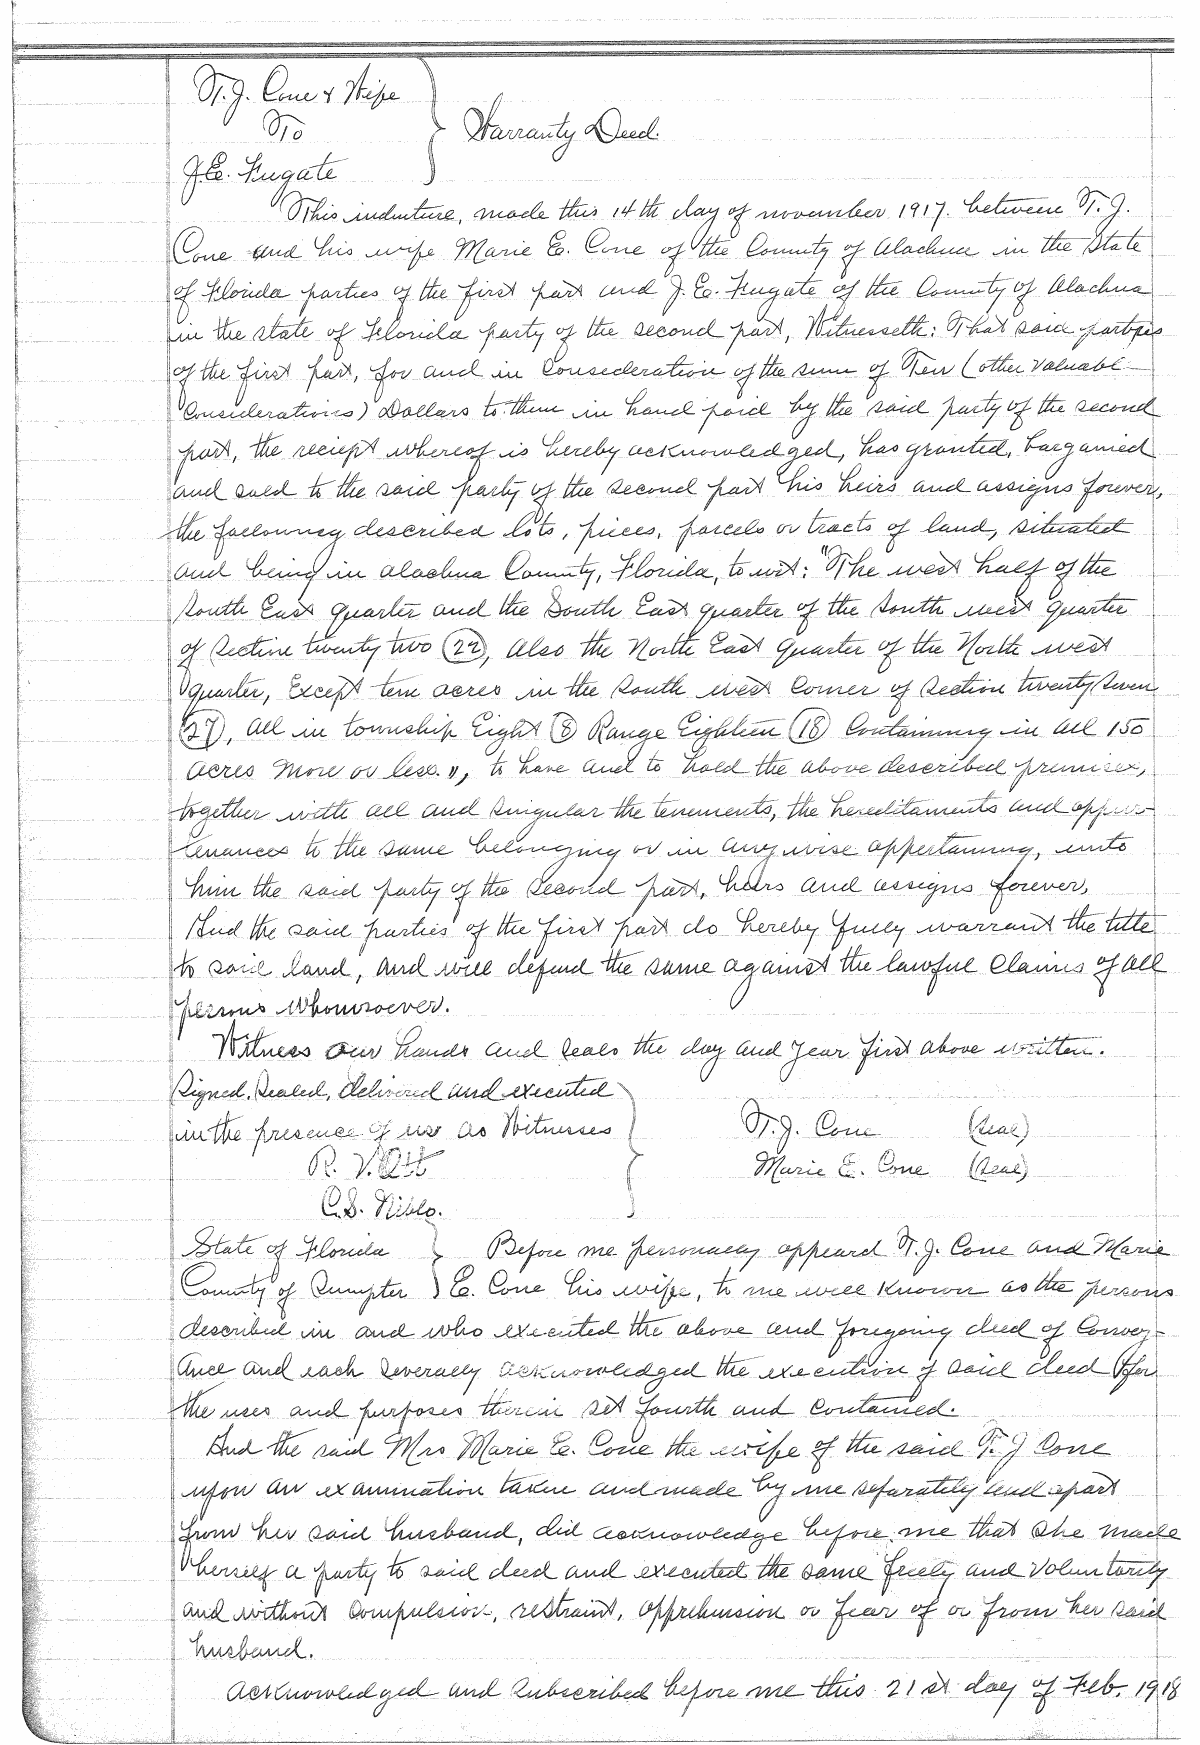 T. J. Cone & Wife
To
Warranty Deed.
J. E. Fugate
This indenture, made this 14th day of november 1917. between T. J.
Cone and his wife Marie E. Cone of the County of Alachua in the State
of Florida parties of the first part and J. E. Fugate of the County of Alachua
in the state of Florida party of the second part, Witnesseth: That said parties
of the first part, for and in Consideration of the sum of Ten (other Valuabl-
Considerations) Dollars to them in hand paid by the said party of the second
part, the reciept whereof is hereby acknowledged, has granted, bargained
and sold to the said party of the second part his heirs and assigns forever,
the following described lots, pieces, parcels or tracts of land, situated
and being in Alachua County, Florida, to wit: "The west half of the
South East quarter and the South East quarter of the South west quarter
of Section twenty two (22), Also the North East Quarter of the North west
quarter, Except ten acres in the South west Corner of Section twenty Seven
(27), all in township Eight (8) Range Eighteen (18) Containing in all 150
acres more or less.", to have and to hold the above described premises,
together with all and singular the tenements, the hereditaments and appur-
tenances to the same belonging or in anywise appertaining, unto
him the said party of the second part, heirs and assigns forever,
And the said parties of the first part do hereby fully warrant the title
to said land, and will defend the same against the lawful Claims of all
persons Whomsoever.
Witness our hands and seals the day and year first above written.
Signed, Sealed, delivered and executed
in the presence of us as Witnesses
T. J. Cone (Seal)
R. V. Ott
Marie E. Cone (Seal)
C. S. Niblo.
State of Florida
Before me personally appeard T. J. Cone and Marie
County of Sumpter
E. Cone his wife, to me well known as the persons
described in and who executed the above and foregoing deed of Convey-
ance and each Severally acknowledged the execution of said deed for
the uses and purposes therein set fourth and contained.
And the said Mrs Marie E. Cone the wife of the said T. J Cone
upon an examination taken and made by me separately and apart
from her said husband, did acknowledge before me that she made
herself a party to said deed and executed the same freely and Voluntarily
and without Compulsion, restraint, apprehension or fear of or from her said
husband.
Acknowledged and Subscribed before me this 21st day of Feb. 1918